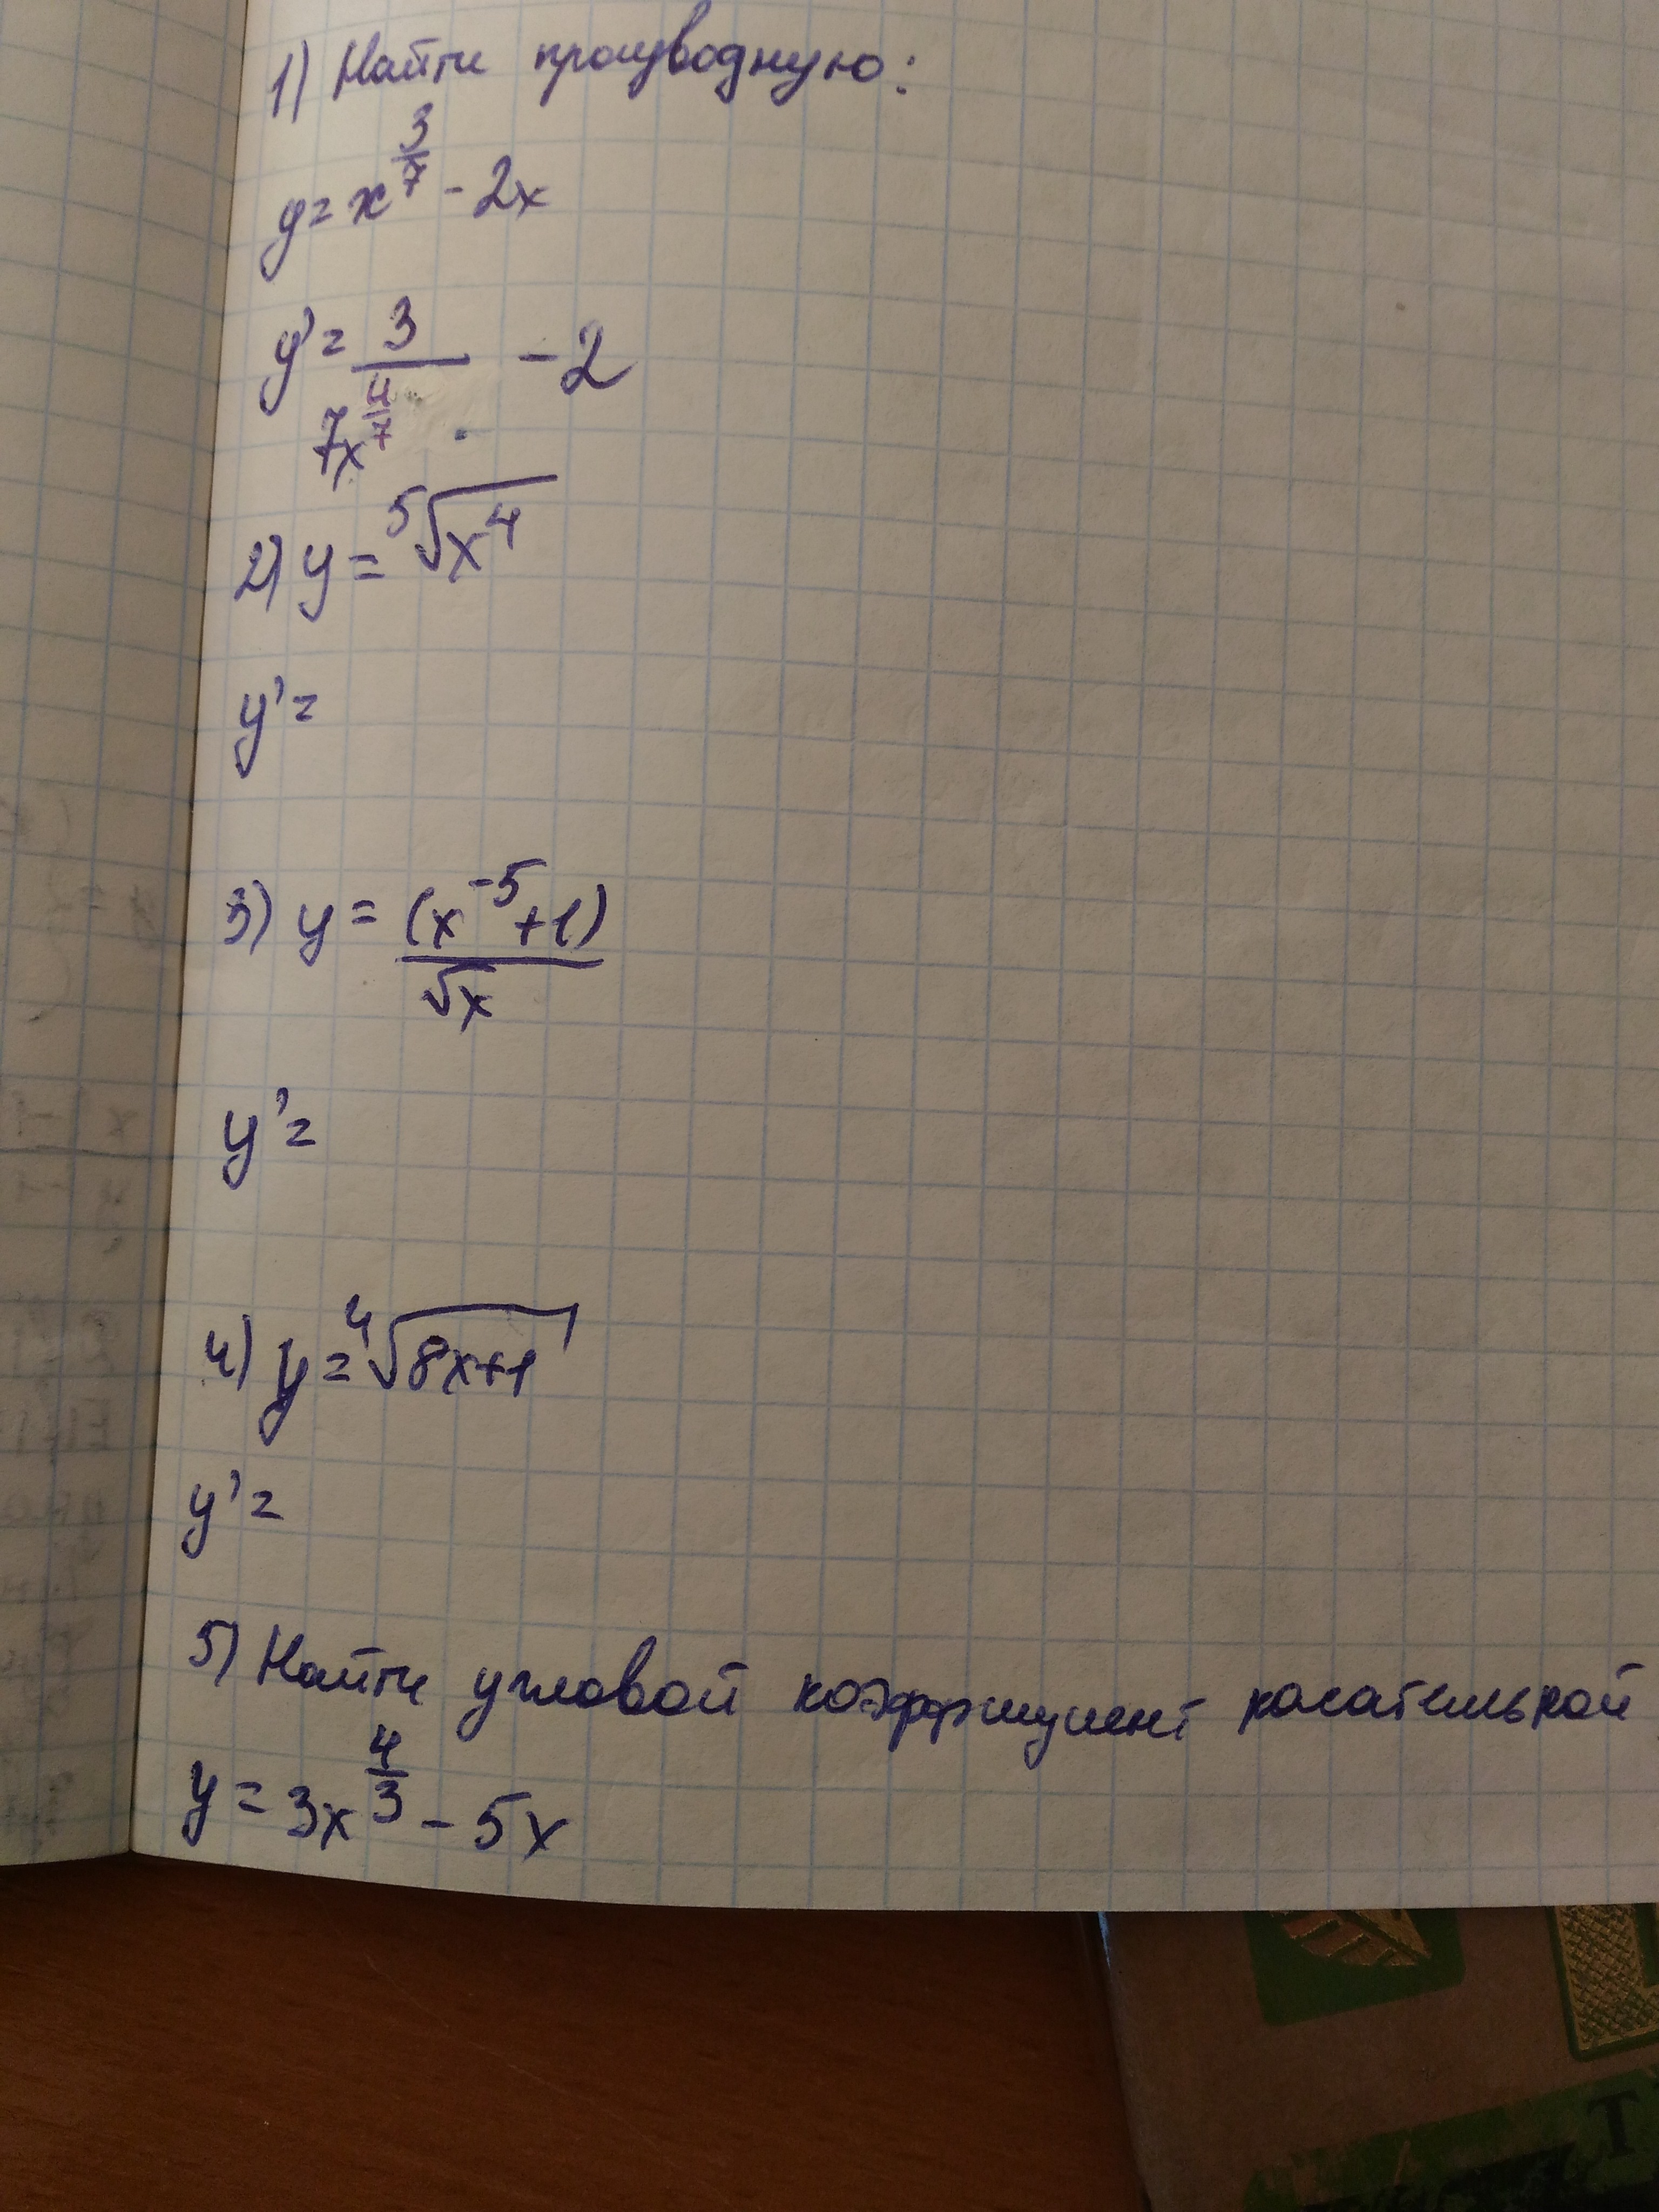 1) Найти производную:
y = x^(3/7) - 2x
y' = 3/(7x^(4/7)) - 2
2) y = ⁵√(x⁴)
y' =
3) y = (x⁻⁵+1)/√x
y' =
4) y = ⁴√(8x+1)
y' =
5) Найти угловой коэффициент касательной
y = 3x^(4/3) - 5x
Т